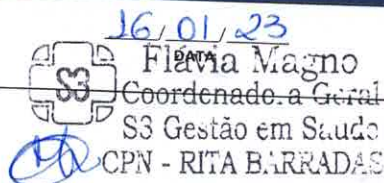 16/01/23
DATA
Flávia Magno
S3
Coordenadora Geral
S3 Gestão em Saúde
CPN - RITA BARRADAS